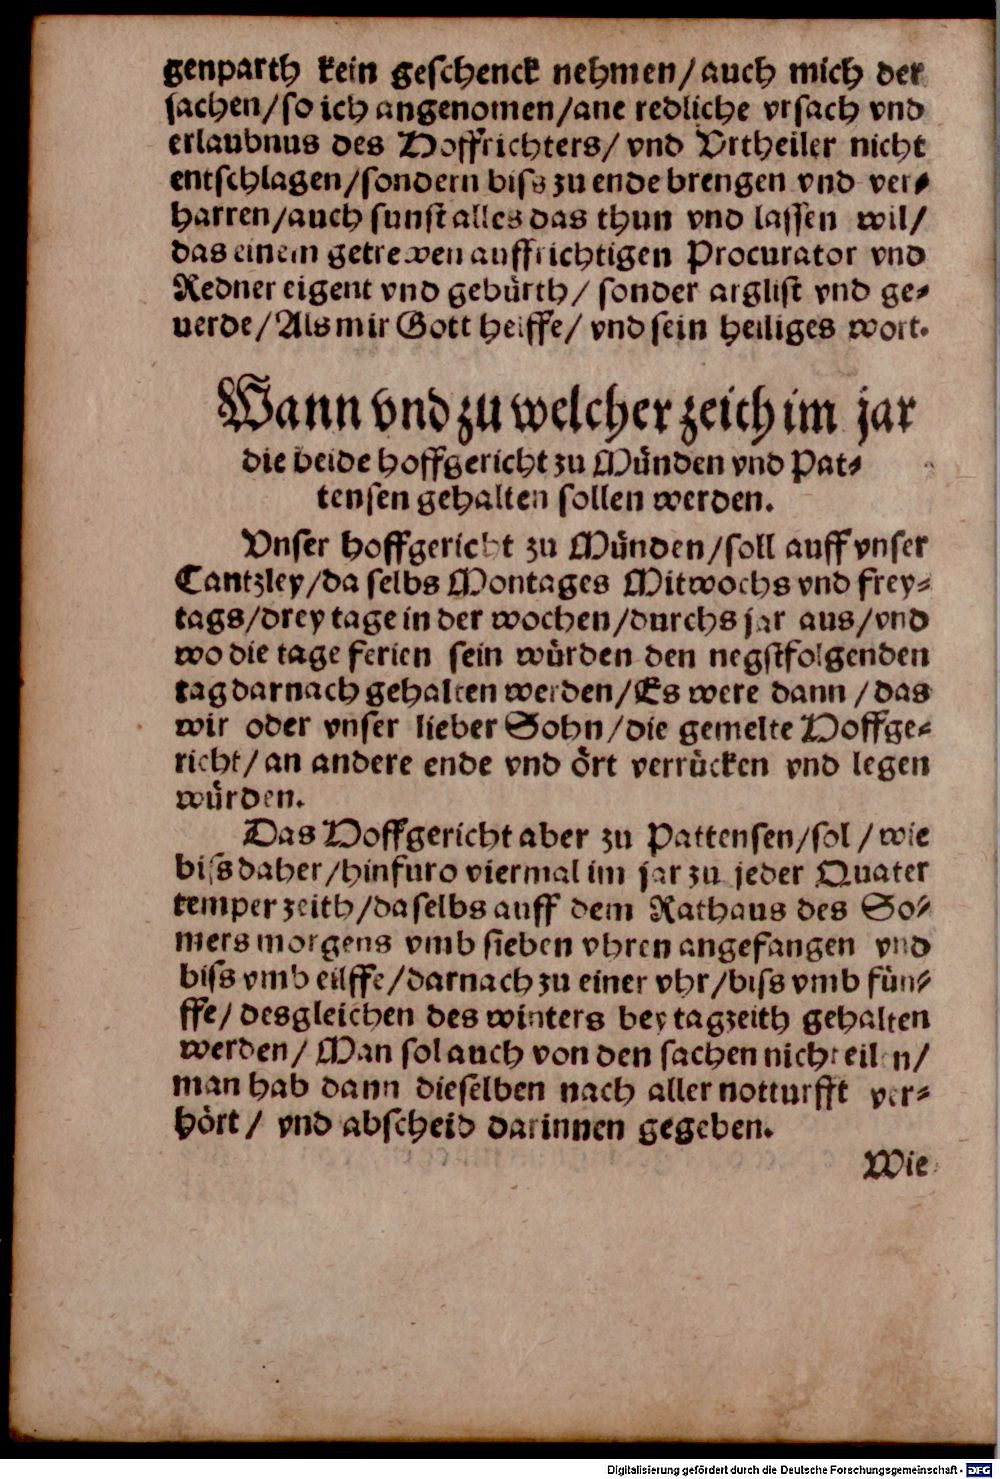 genparth kein geschenck nehmen/auch mich der
sachen/so ich angenomen/ane redliche vrsach vnd
erlaubnus des Hoffrichters/ vnd Vrtheiler nicht
entschlagen/sondern biss zu ende brengen vnd ver⸗
harren/auch sunst alles das thun vnd lassen wil/
das einem getrewen auffrichtigen Procurator vnd
Redner eigent vnd gebürth/ sonder arglist vnd ge⸗
uerde/Als mir Gott helffe/ vnd sein heiliges wort.
Wann vnd zu welcher zeith im jar
die beide hoffgericht zu Münden vnd Pat⸗
tensen gehalten sollen werden.
Vnser hoffgericht zu Münden/soll auff vnser
Cantzley/da selbs Montages Mitwochs vnd frey⸗
tags/drey tage in der wochen/durchs jar aus/vnd
wo die tage ferien sein würden den negstfolgenden
tag darnach gehalten werden/Es were dann /das
wir oder vnser lieber Sohn/die gemelte Hoffge⸗
richt/an andere ende vnd ört verrücken vnd legen
würden.
Das Hoffgericht aber zu Pattensen/sol/wie
biss daher/hinfuro viermal im jar zu jeder Quater
temper zeith/daselbs auff dem Rathaus des So⸗
mers morgens vmb sieben vhren angefangen vnd
biss vmb eilffe/darnach zu einer vhr/biss vmb fün⸗
ffe/ desgleichen des winters bey tagzeith gehalten
werden/ Man sol auch von den sachen nicht eilen/
man hab dann dieselben nach aller notturfft ver⸗
hört/ vnd abscheid darinnen gegeben.
Wie
Digitalisierung gefördert durch die Deutsche Forschungsgemeinschaft - DFG